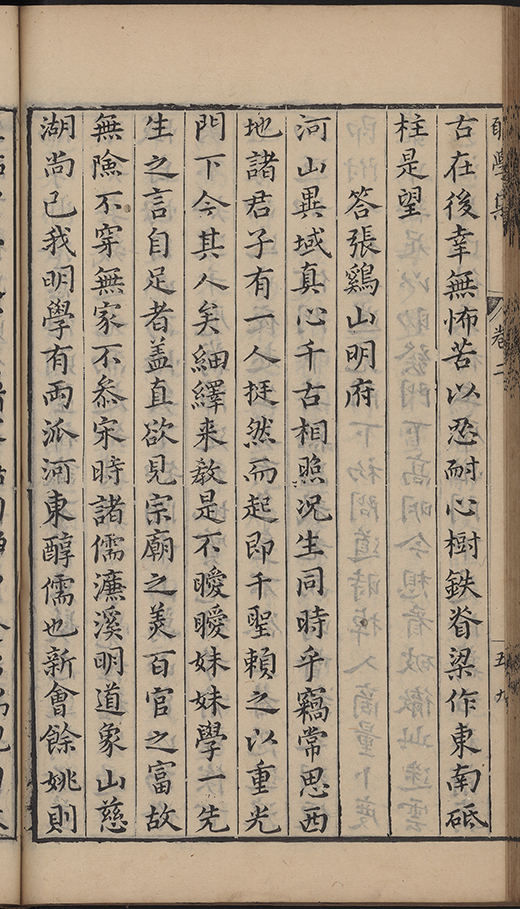 古在後幸無怖苦以忍耐心樹鉄脊梁作東南砥
柱是望
答張鷄山明府
河山異域真心千古相照況生同時乎竊常思西
地諸君子有一人挺然而起即千聖賴之以重光
門下今其人矣細繹来教是不曖曖妹妹學一先
生之言自足者盖直欲見宗廟之美百官之富故
無險不穿無家不叅宋時諸儒濂溪明道象山慈
湖尚已我明學有兩派河東醇儒也新會餘姚則
卷二
五九